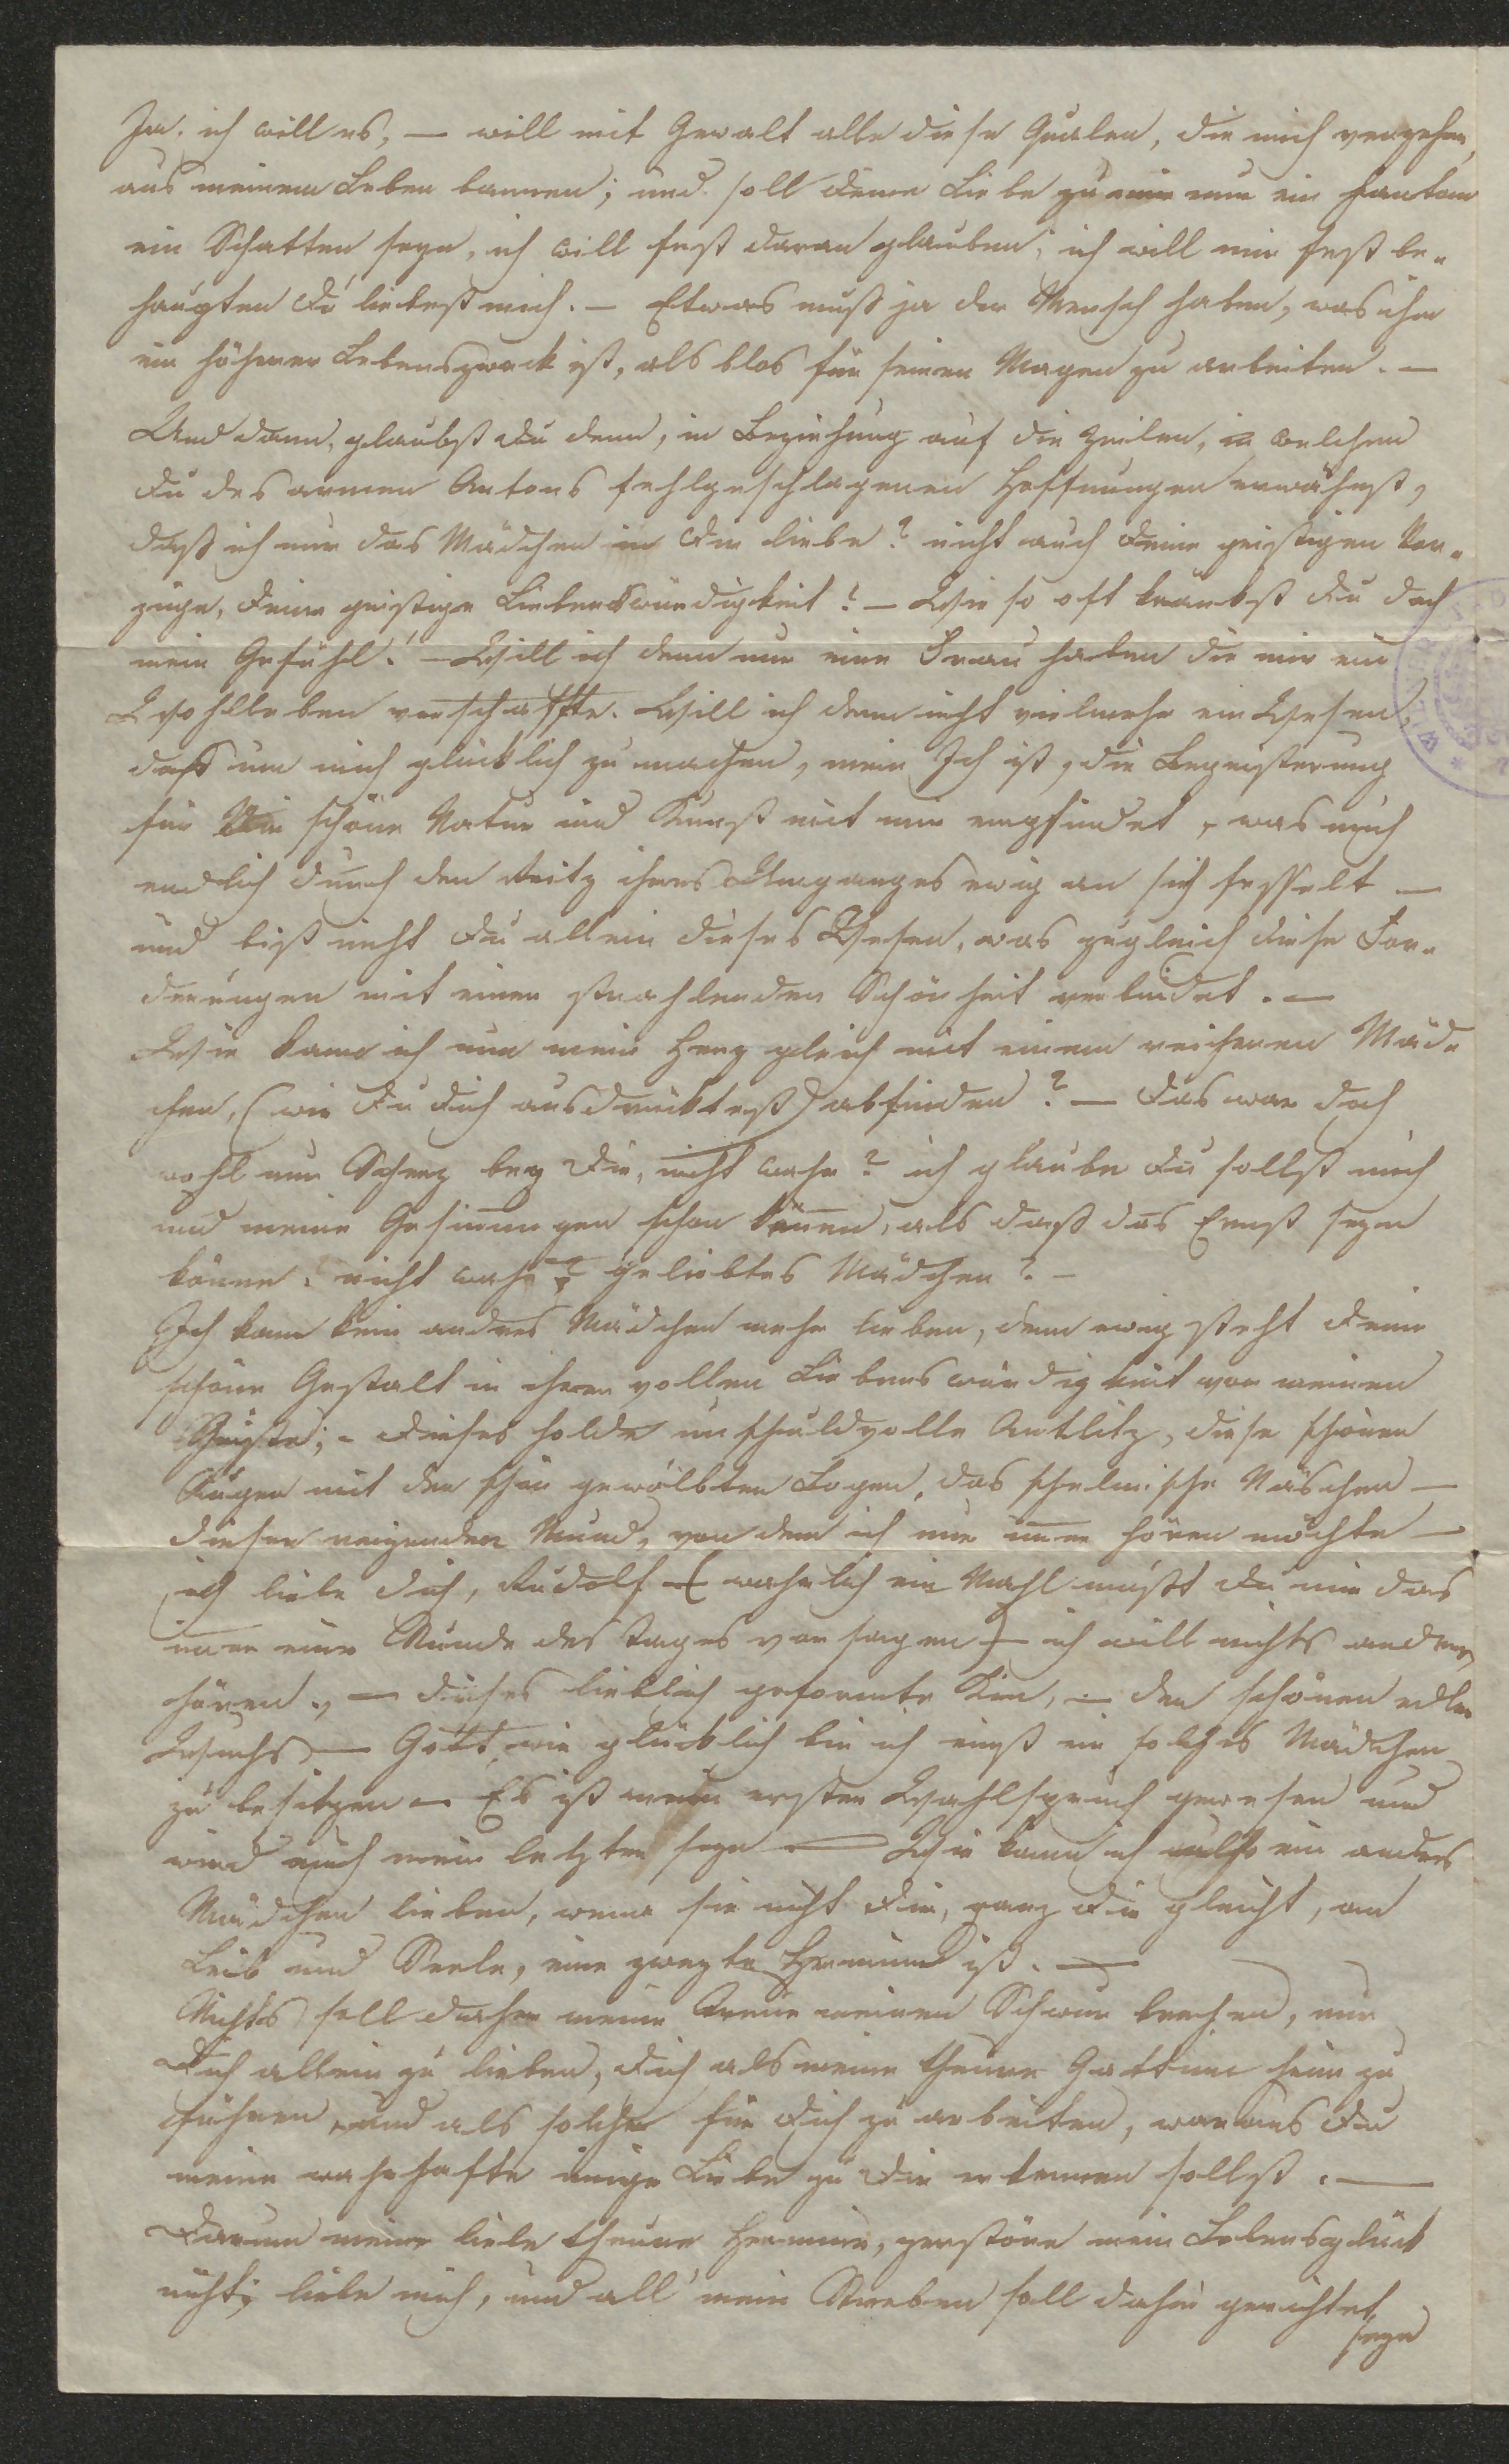 Ja. ich will es, — will mit Gewalt alle diese Qualen, die mich verzehren,
aus meinem Leben bannen; und soll Deine Liebe zu mir nur ein Fantom
ein Schatten seyn, ich will fest daran glauben, ich will mir fest be-
haupten Du liebest mich. — Etwas muß ja der Mensch haben, was ihm
ein höherer Lebenszweck ist, als blos für seinen Magen zu arbeiten. —
Und dann, glaubst Du denn, in Beziehung auf die Zeilen, in welchen
Du des armen Antons fehlgeschlagenen Hoffnungen erwähnst,
daß ich nur das Mädchen in Dir liebe? nicht auch Deine geistigen Vor-
züge, Deine geistige Liebenswürdigkeit? — Wie so oft kränkst Du doch
mein Gefühl! — Will ich denn nur eine Frau haben die mir ein
Wohlleben verschaffte. Will ich denn nicht vielmehr ein Wesen,
daß um mich glücklich zu machen, mein Ich ist, die Begeisterung
für die schöne Natur und Kunst mit mir empfindet, was mich
endlich durch den Reitz ihres Umganges ewig an sich fesselt —
und bist nicht Du allein dieses Wesen, was zugleich diese For-
derungen mit einer strahlenden Schönheit verbindet. —
Wie kann ich nun mein Herz gleich mit einem reicheren Mäd-
chen, (wie Du dich ausdrücktest) abfinden? — Das war doch
wohl nur Scherz bey Dir, nicht wahr? ich glaube Du sollst mich
und meine Gesinnungen schon kennen, als daß das Ernst seyn
könne, nicht wahr? geliebtes Mädchen? —
Ich kann kein andres Mädchen mehr lieben, denn ewig steht Deine
schöne Gestalt in ihrer vollen Liebenswürdigkeit vor meinem
Geiste; - dieses holde unschuldvolle Antlitz, diese schönen
Augen mit den schön gewölbten Bogen, das schelmische Näschen —
dieser reizender Mund, von dem ich nur immer hören möchte —
ich liebe dich, Rudolf — (wahrlich ein Mahl mußt Du mir das
immer eine Stunde des Tages vor sagen) — ich will nichts anders
hören, — dieses lieblich geformte Kinn, — den schönen edlen
Wuchs — Gott, wie glücklich bin ich einst ein solches Mädchen
zu besitzen — Es ist mein erster Wahlspruch gewesen und
wird auch mein letzter seyn — Wie kann ich ein anders
Mädchen lieben, wenn sie nicht Dir, ganz Dir gleicht, an
Leib und Seele, eine zweyte Hermine ist. —
Nichts soll daher meine Treue meinen Schwur brechen, nur
Dich allein zu lieben, Dich als meine theure Gattinn heim zu
führen, und als solche für Dich zu arbeiten, woraus Du
meine wahrhafte innige Liebe zu Dir erkennen sollst. —
Darum meine liebe theure Hermine, zerstöre mein Lebensglück
nicht, liebe mich, und all mein Streben soll dahin gerichtet
seyn